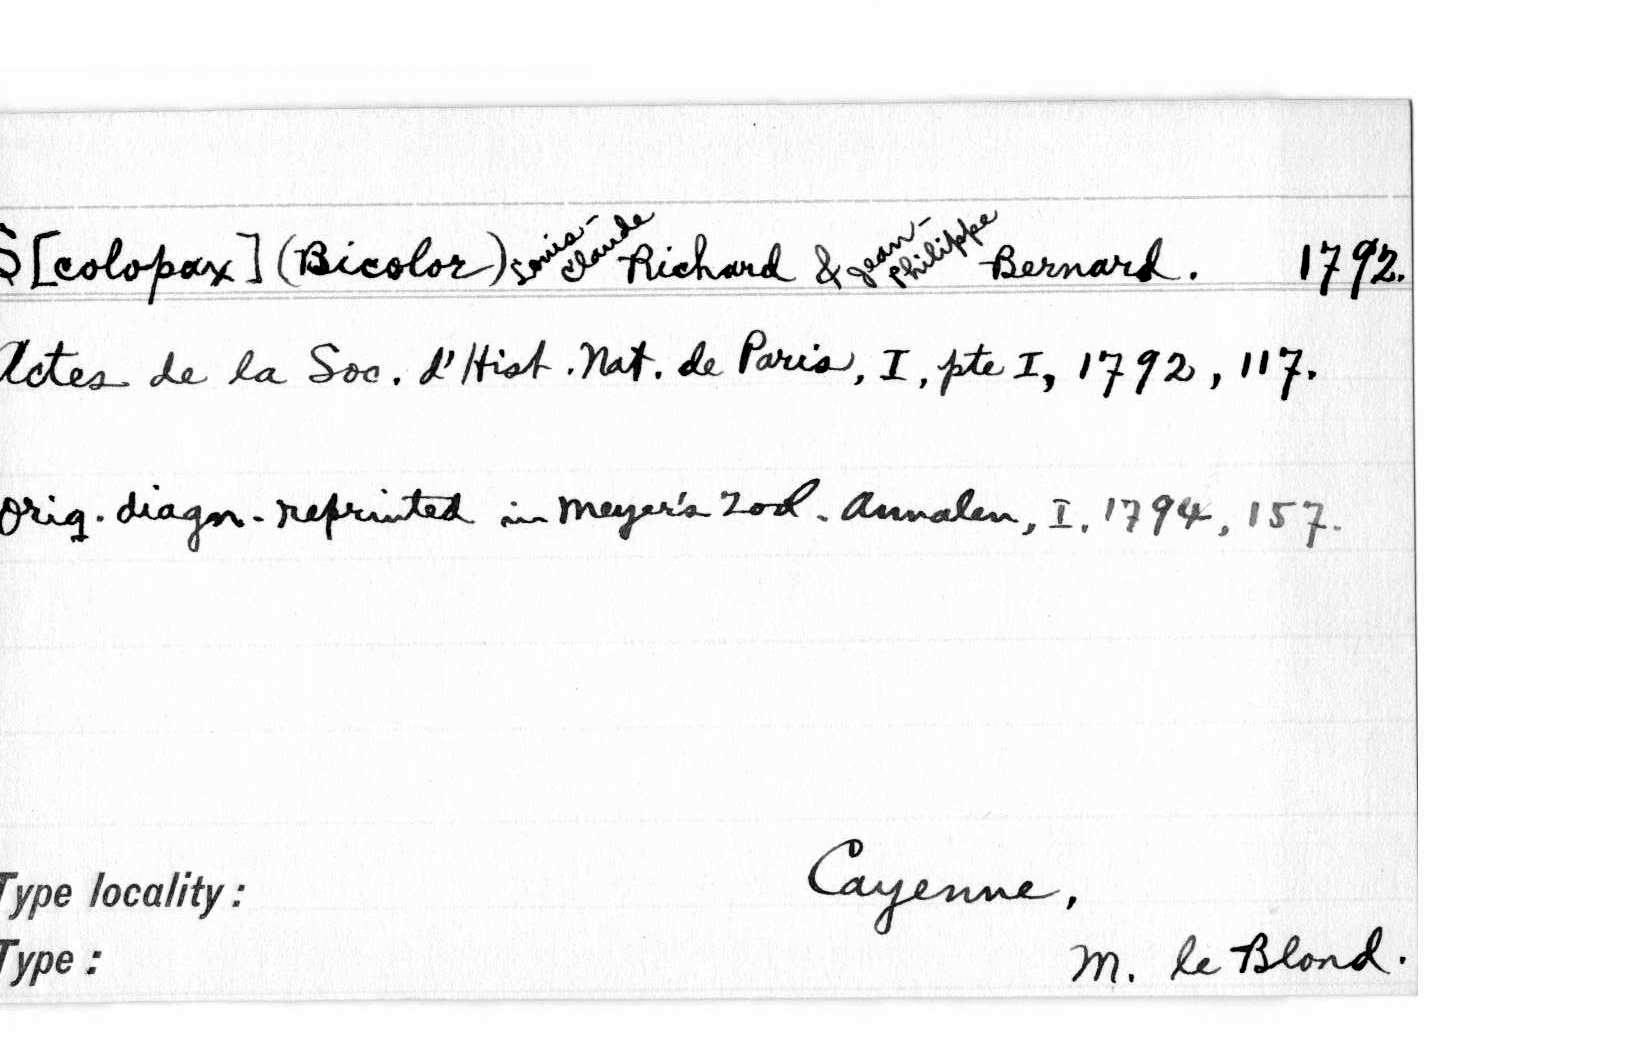 S[colopax] (Bicolor) Louis-Claude Richard & Jean-Philippe Bernard. 1792.
Actes de la Soc. d'Hist. Nat. de Paris, I, pte I, 1792, 117.
Orig. diagn. reprinted in Meyer's Zool. Annalen, I. 1794, 157.
Type locality: Cayenne,
Type: M. le Blond.